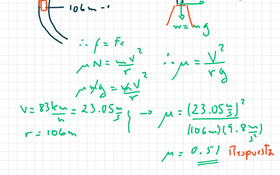 106m
w=mg
∴ f = Fc
μN = mv²/r
μmg = mv²/r
V = 83km/h = 23.05 m/s
r = 106m
∴ μ = V²/rg
→ μ = (23.05 m/s)²/(106m)(9.8 m/s²)
μ = 0.51 Respuesta